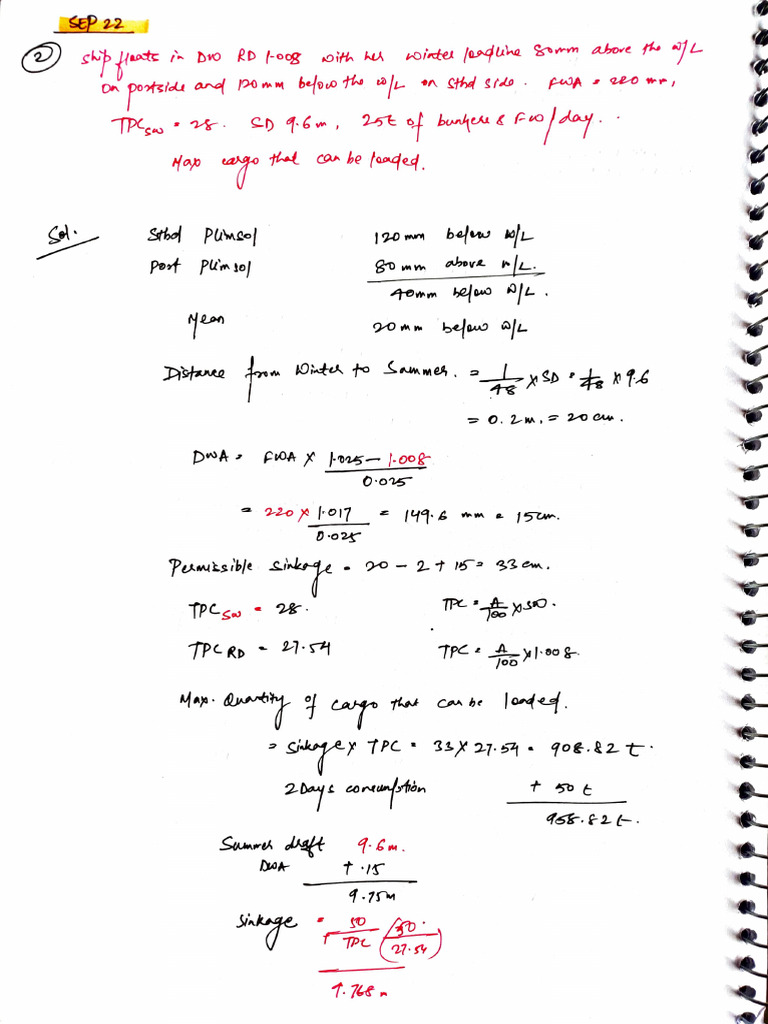 SEP 22
② Ship floats in DW RD 1.008 with her winter loadline 80mm above the W/L
on portside and 120mm below the W/L on stbd side. FWA = 220 mm,
TPCsw = 28. SD 9.6m, 25t of bunkers & FW/day.
Max cargo that can be loaded.
Sol. Stbd Plimsol 120mm below W/L
Port Plimsol 80mm above W/L.
40mm below W/L.
Mean 20mm below W/L
Distance from Winter to Summer. = 1/48 × SD = 1/48 × 9.6
= 0.2m. = 20cm.
DWA = FWA × 1.025 – 1.008 / 0.025
= 220 × 1.017 / 0.025 = 149.6 mm = 15cm.
Permissible sinkage = 20 – 2 + 15 = 33cm.
TPCsw = 28. TPC = A/100 ×
TPC RD = 27.54 TPC = A/100 × 1.008
Max. Quantity of cargo that can be loaded.
= Sinkage × TPC = 33 × 27.54 = 908.82 t.
2 Days + 50 t
958.82 t.
Summer draft 9.6m.
DWA + .15
9.75m
Sinkage = + 50/TPC (50/27.54)
9.768 m